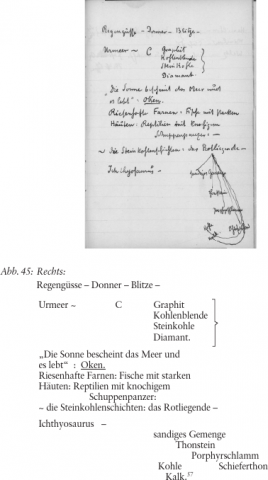 Regengüsse – Donner – Blitze –
Urmeer ~ C Graphit
Kohlenblende
Steinkohle
Diamant.
„Die Sonne bescheint das Meer und
es lebt“ : Oken.
Riesenhafte Farnen: Fische mit starken
Häuten: Reptilien mit knochigem
Schuppenpanzer: ~
~ die Steinkohlenschichten: das Rotliegende –
Ichthyosaurus –
sandiges Gemenge
Thonstein
Porphyrschlamm
Kohle Schieferthon
Kalk
Abb. 45: Rechts:
Regengüsse – Donner – Blitze –
Urmeer ~ C Graphit
Kohlenblende
Steinkohle
Diamant.
„Die Sonne bescheint das Meer und
es lebt“ : Oken.
Riesenhafte Farnen: Fische mit starken
Häuten: Reptilien mit knochigem
Schuppenpanzer:
~ die Steinkohlenschichten: das Rotliegende –
Ichthyosaurus –
sandiges Gemenge
Thonstein
Porphyrschlamm
Kohle Schieferthon
Kalk.37